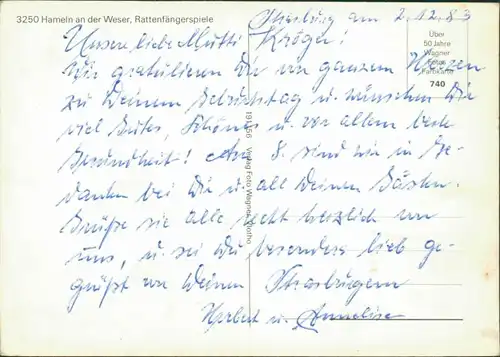 3250 Hameln an der Weser, Rattenfängerspiele
Strasburg am 2.12.83
Unsere liebe Mutti Kröger!
Wir gratulieren Dir von ganzem Herzen
zu Deinem Geburtstag u. wünschen Dir
viel Gutes, Schönes u. vor allem beste
Gesundheit! Am 8. sind wir in Ge-
danken bei Dir u. all Deinen Gästen.
Grüße sie alle recht herzlich von
uns, u. sei Du besonders lieb ge-
grüßt von Deinen Strasburgern
Herbert u. Annelise
Über
50 Jahre
Wagner
Fotos
Farbkarte
740
Verlag Foto Wagner, Vlotho